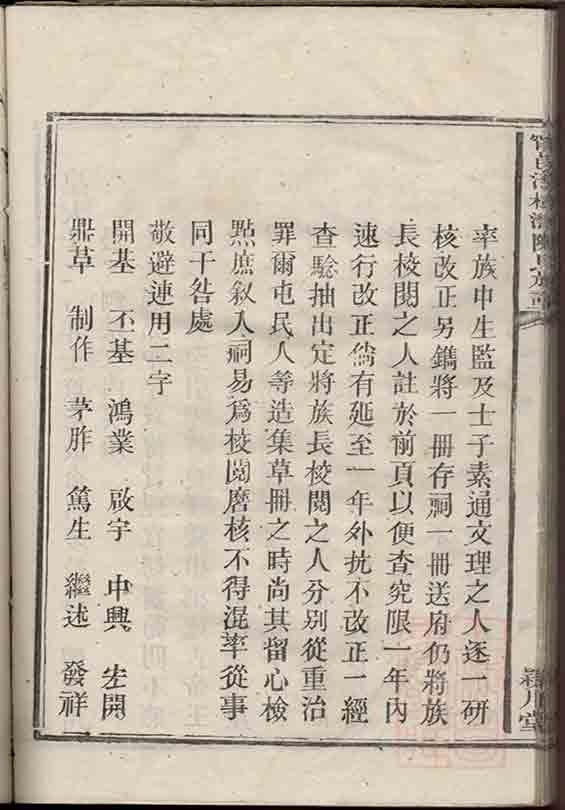 率族中生監及士子素通文理之人逐一研
核改正另鐫將一冊存祠一冊送府仍將族
長校閱之人註於前頁以便查究限一年內
速行改正倘有延至一年外抗不改正一經
查驗抽出定將族長校閱之人分別從重治
罪爾屯民人等造集草冊之時尚其留心檢
點庶敘入祠易爲校閱磨核不得混率從事
同干咎處
敬避連用二字
開基 丕基 鴻業 啟宇 中興 宏開
鼎革 制作 茅胙 篤生 繼述 發祥
潁川堂